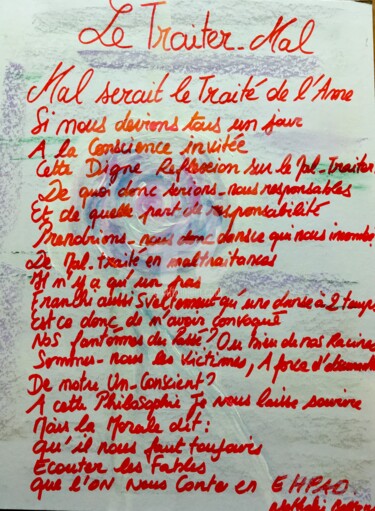 Le Traiter-Mal
Mal serait le Traité de l'Âme
Si nous devions tous un jour
A la Conscience invitée
Cette Digne Réflexion sur le Mal-Traiter
De quoi donc serions-nous responsables
Et de quelle part de responsabilité
Prendrions-nous donc dans ce qui nous
De Mal-traité en maltraitances
Il n'y a qu'un pas
Franchi aussi Sveltement qu'une danse à 2 temps
Est ce donc de n'avoir convoqué
Nos fantômes du Passé? Ou bien de nos Racines
Sommes-nous les Victimes, A force d'
De notre Un-Conscient?
A cette Philosophie Je vous laisse sourire
Mais la Morale dit:
qu'il nous faut toujours
Ecouter les Fables
Que l'ON Nous Conte en EHPAD
Nathalie